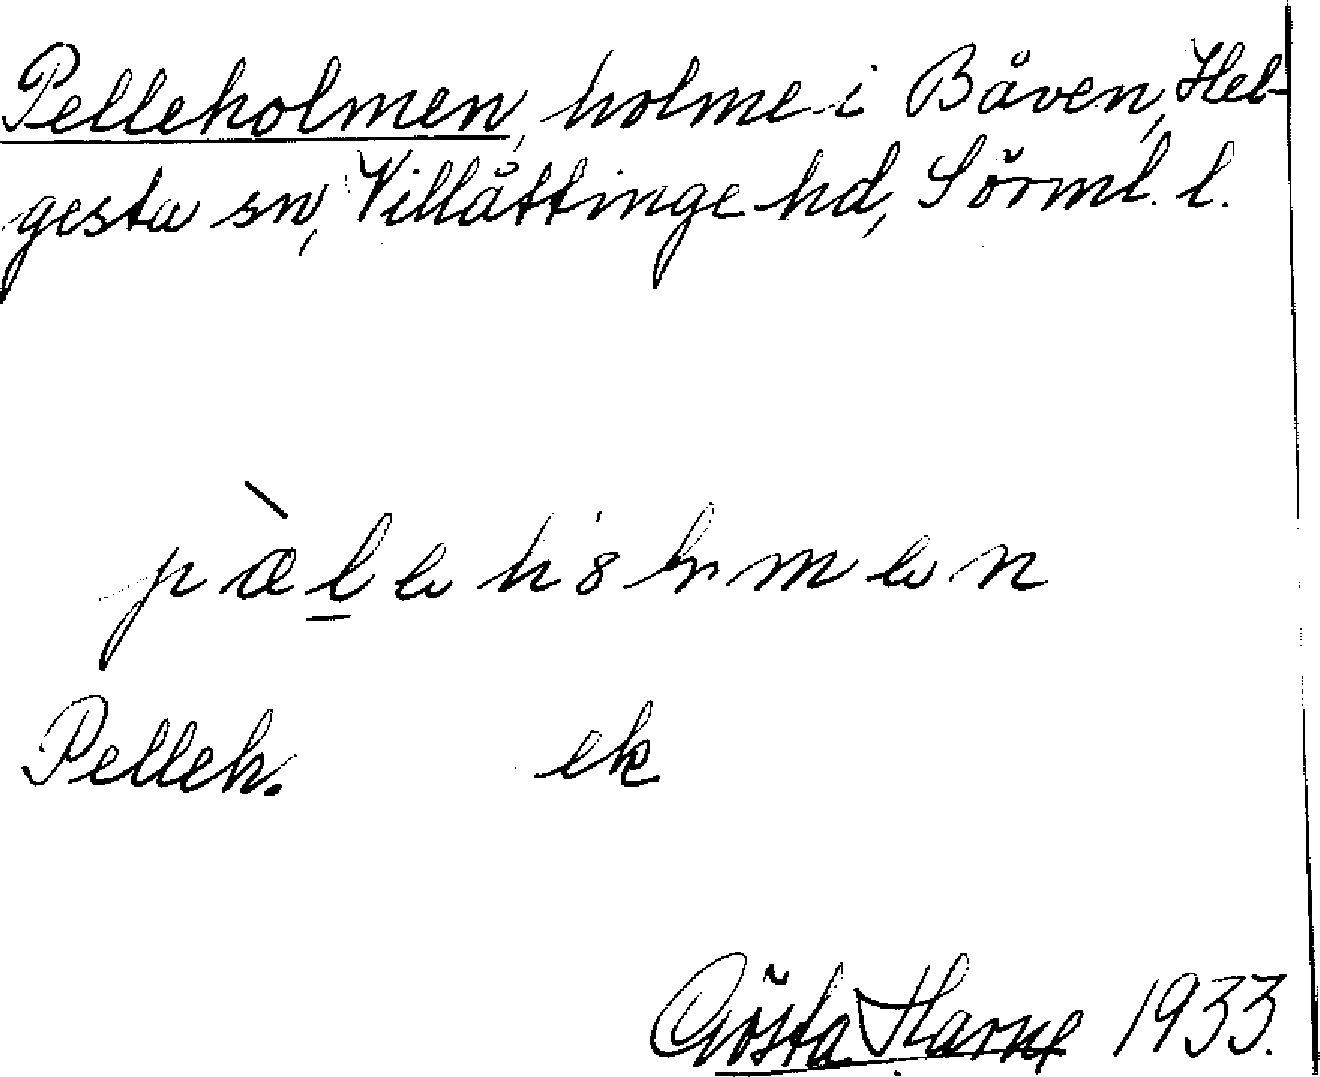 Pelleholmen, holme i Båven, Hel-
gesta sn, Villåttinge hd, Sörml. l.
Pelleh. ek
Gösta Harne 1933.